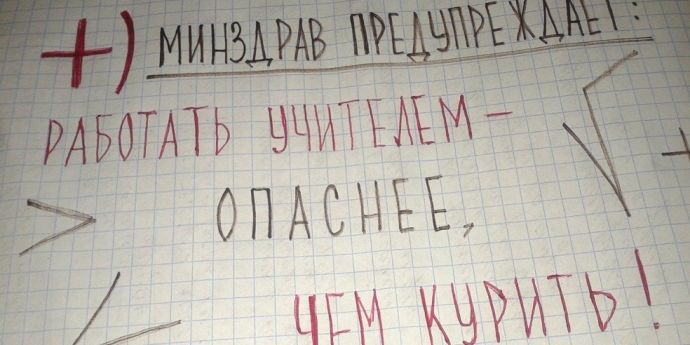 +) МИНЗДРАВ ПРЕДУПРЕЖДАЕТ:
РАБОТАТЬ УЧИТЕЛЕМ — √ +
> ОПАСНЕЕ,
ЧЕМ КУРИТЬ!